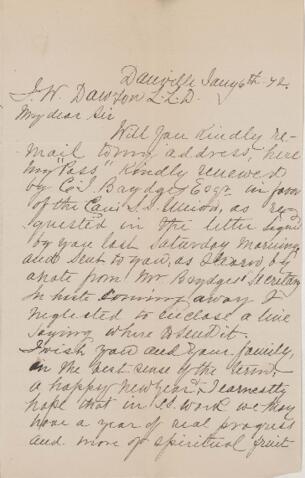 Danville Jany 6th 72.
J. W. Dawson L.L.D.
My dear Sir
Will you kindly re-
mail to my address, here
my "Pass" kindly renewed
by C. J. Brydges Esqr. in favor
of the Can. S. S. Union, as re-
quested in the letter signed
by you last Saturday morning
and sent to you, as I learn by
a note from Mr Brydges' Secretary
In haste coming away I
neglected to enclose a line
saying where to send it.
I wish you and your family,
in the best sense of the term
a happy New Year & I earnestly
hope that in S.S. work we may
have a year of real progress
and more of spiritual fruit